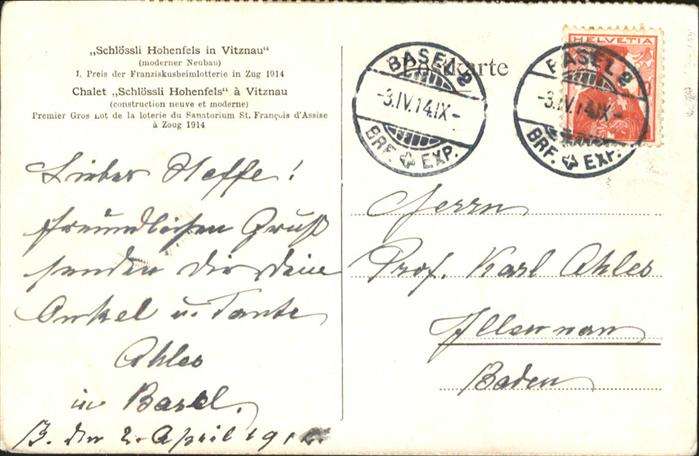 „Schlössli Hohenfels in Vitznau“
(moderner Neubau)
I. Preis der Franziskusheimlotterie in Zug 1914
Chalet „Schlössli Hohenfels“ à Vitznau
(construction neuve et moderne)
Premier Gros Lot de la loterie du Sanatorium St. François d'Assise
à Zoug 1914
Postkarte
HELVETIA
BASEL 2
-3.IV.14.IX-
BRF. EXP.
BASEL 2
-3.IV.14.IX-
BRF. EXP.
Lieber Neffe!
freundlichen Gruß
senden dir deine
Onkel u. Tante
Ahles
in Basel.
B. den 2. April 191
Herrn
Prof. Karl Ahles
Illenau
Baden